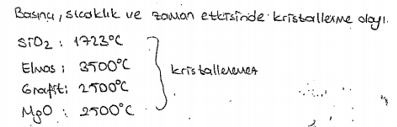 Basınç, sıcaklık ve zaman etkisinde kristallerme olayı.
SiO2 : 1723°C
Elmas ; 3500°C
Grafit : 2500°C
MgO : 2500°C
kristallenemez